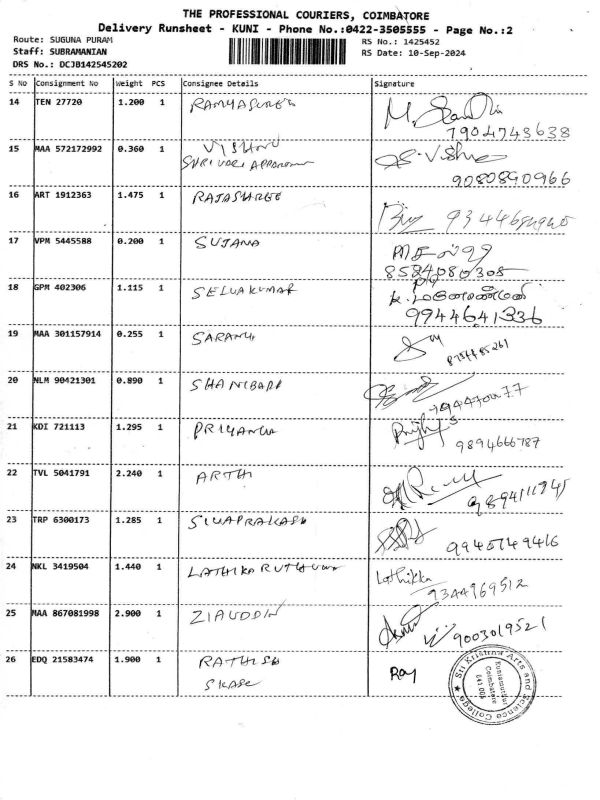 THE PROFESSIONAL COURIERS, COIMBATORE
Delivery Runsheet - KUNI - Phone No.:0422-3505555 - Page No.:2
Route: SUGUNA PURAM
Staff: SUBRAMANIAN
DRS No.: DCJB142545202
RS No.: 1425452
RS Date: 10-Sep-2024
S No Consignment No Weight PCS Consignee Details Signature
14 TEN 27720 1.200 1 RAMYASUREN
7904743638
15 MAA 572172992 0.360 1 VISHNU
S. Vishnu
9080890966
16 ART 1912363 1.475 1 RAJASHREE
17 VPM 5445588 0.200 1 SUJANA
8584080305
18 GPM 402306 1.115 1 SELVAKUMAR
9944641336
19 MAA 301157914 0.255 1 SARANYA
20 NLM 90421301 0.890 1
21 KDI 721113 1.295 1 PRIYANKA
9894666787
22 TVL 5041791 2.240 1 ARTHI
23 TRP 6300173 1.285 1 SIVAPRAKASH
24 NKL 3419504 1.440 1 LATHIKA
Lathikka
9344969512
25 MAA 867081998 2.900 1 ZIAUDDIN
9003019521
26 EDQ 21583474 1.900 1 RATHISH
Roy
Sri Krishna Arts and Science College
Kuniamuthur
Coimbatore
641 008